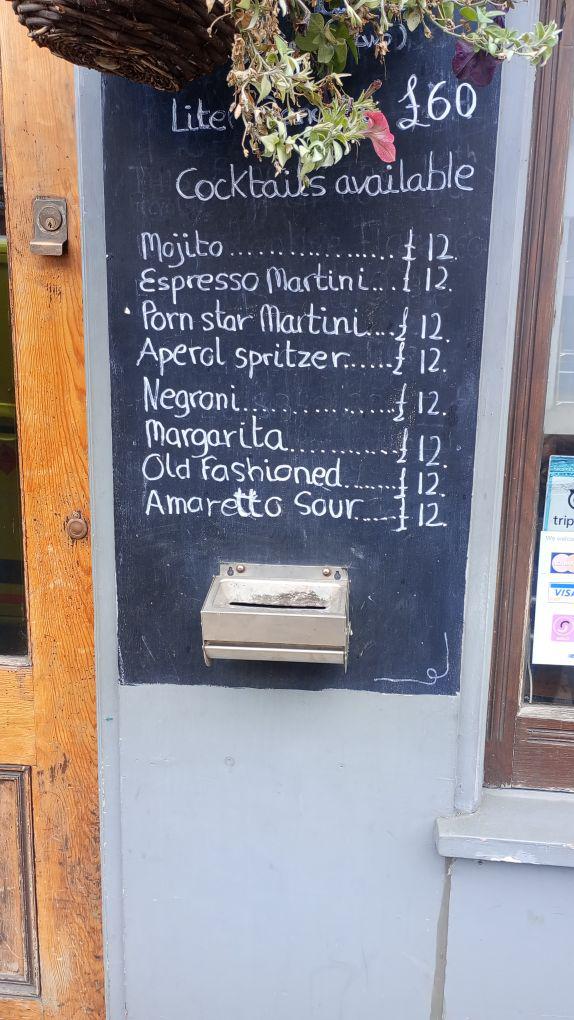 Lite £60
Cocktails available
Mojito.................£ 12.
Espresso Martini...£ 12.
Porn star Martini....£ 12.
Aperol spritzer......£ 12.
Negroni................£ 12.
Margarita............£ 12.
Old Fashioned.......£ 12.
Amaretto Sour.....£ 12.
trip
VISA